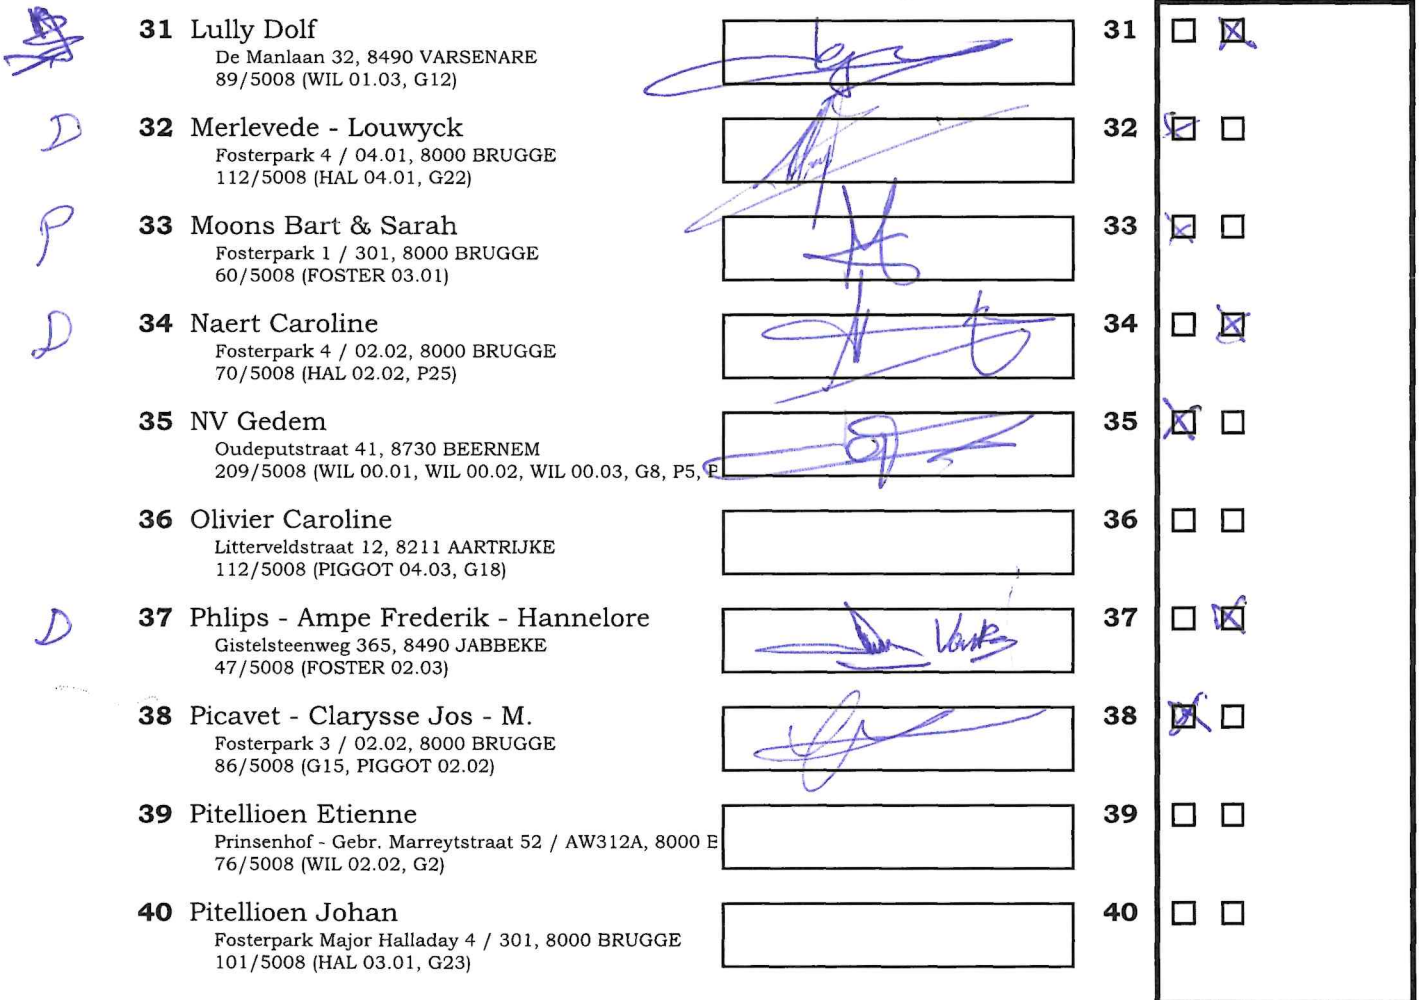 31 Lully Dolf 31
De Manlaan 32, 8490 VARSENARE
89/5008 (WIL 01.03, G12)
D 32 Merlevede - Louwyck 32
Fosterpark 4 / 04.01, 8000 BRUGGE
112/5008 (HAL 04.01, G22)
P 33 Moons Bart & Sarah 33
Fosterpark 1 / 301, 8000 BRUGGE
60/5008 (FOSTER 03.01)
D 34 Naert Caroline 34
Fosterpark 4 / 02.02, 8000 BRUGGE
70/5008 (HAL 02.02, P25)
35 NV Gedem 35
Oudeputstraat 41, 8730 BEERNEM
209/5008 (WIL 00.01, WIL 00.02, WIL 00.03, G8, P5,
36 Olivier Caroline 36
Litterveldstraat 12, 8211 AARTRIJKE
112/5008 (PIGGOT 04.03, G18)
D 37 Phlips - Ampe Frederik - Hannelore 37
Gistelsteenweg 365, 8490 JABBEKE
47/5008 (FOSTER 02.03)
38 Picavet - Clarysse Jos - M. 38
Fosterpark 3 / 02.02, 8000 BRUGGE
86/5008 (G15, PIGGOT 02.02)
39 Pitellioen Etienne 39
Prinsenhof - Gebr. Marreytstraat 52 / AW312A, 8000
76/5008 (WIL 02.02, G2)
40 Pitellioen Johan 40
Fosterpark Major Halladay 4 / 301, 8000 BRUGGE
101/5008 (HAL 03.01, G23)